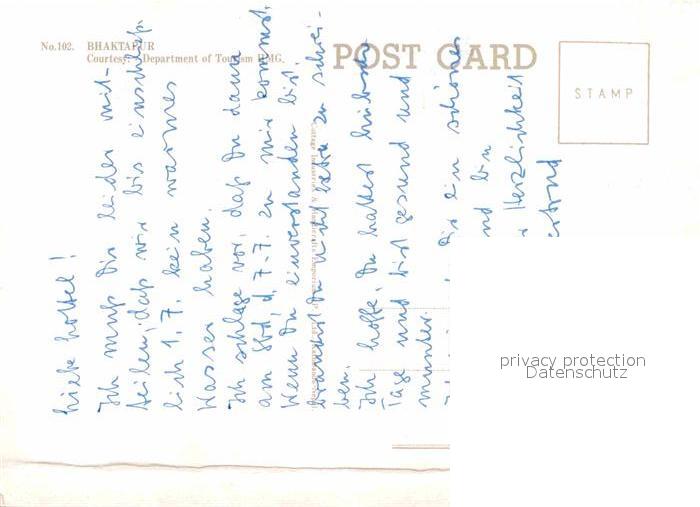 No.102. BHAKTAPUR
Courtesy: Department of Tourism HMG.
POST CARD
STAMP
Liebe Lottel!
Ich muß Dir leider mit-
teilen, daß wir bis einschließ-
lich 1.7. kein warmes
Wasser haben.
Ich schlage vor, daß Du dann
am 7.7. zu mir kommst.
Wenn Du einverstanden bist,
brauchst Du nicht extra zu schrei-
ben.
Ich hoffe, Du hattest hübsche
Tage und bist gesund und
munter.
Dir ein schönes
nd bin
Herzlichkeit
privacy protection
Datenschutz